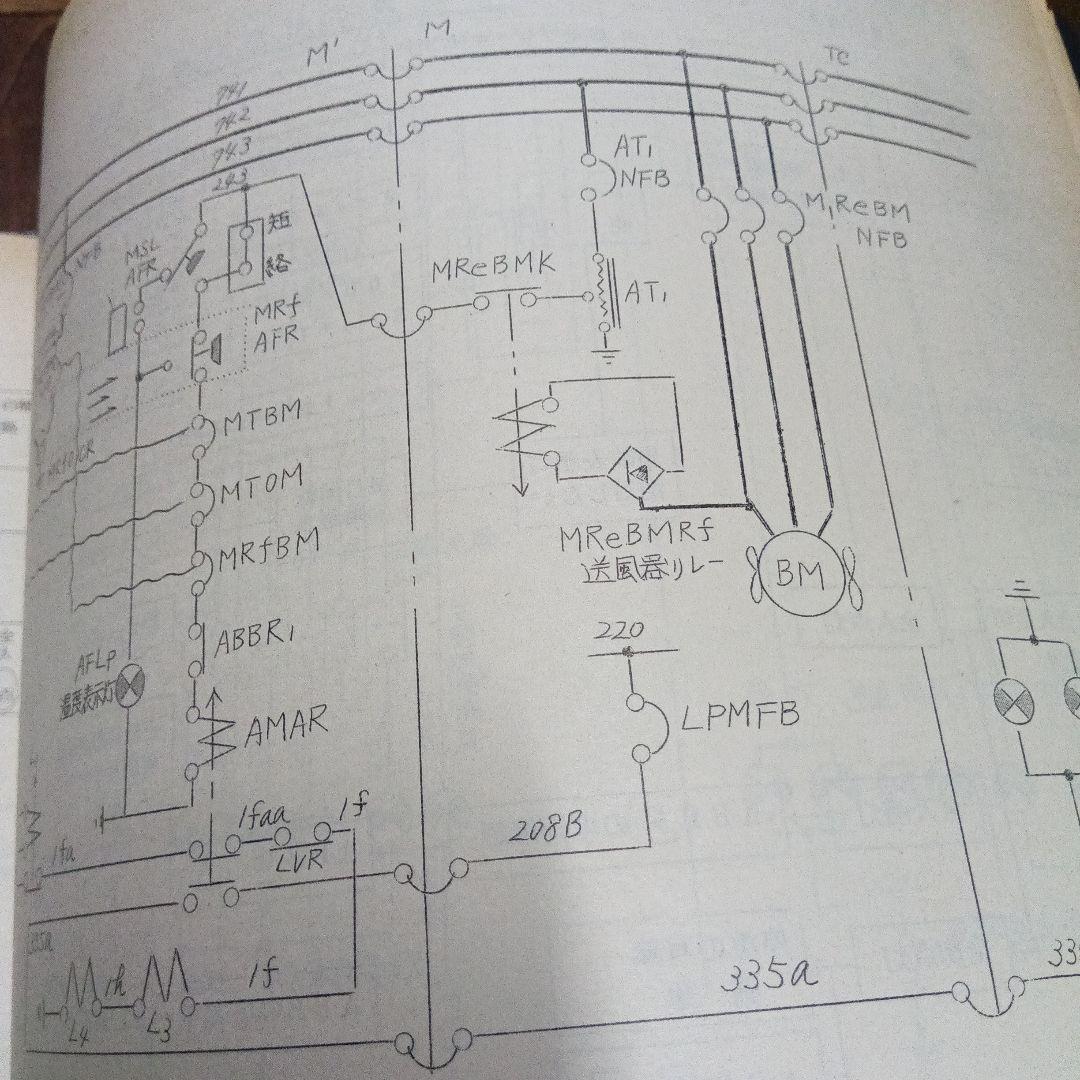 M'
M
Tc
741
742
743
243
短
絡
MSL
AFR
MRf
AFR
AT₁
NFB
M₁ReBM
NFB
MReBMK
AT₁
MTBM
MTOM
MRfBM
ABBR₁
AMAR
MReBMRf
送風器リレー
BM
AFLP
温度表示灯
220
LPMFB
1fa
1faa
1f
LVR
208B
335a
1h
1f
L4
L3
335a
33